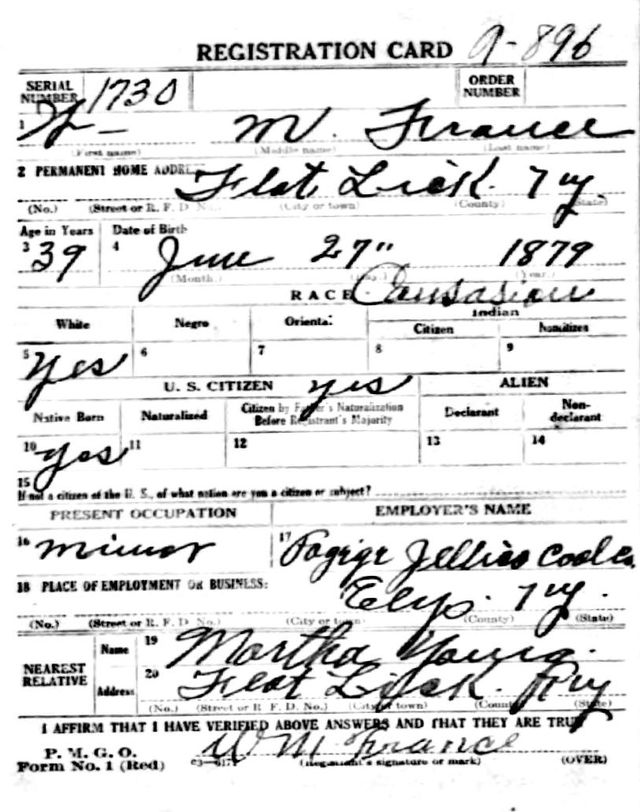 REGISTRATION CARD 9-896
SERIAL NUMBER 1730 ORDER NUMBER
1 M. France
(First name) (Middle name) (Last name)
2 PERMANENT HOME ADDRESS: Flat Lick. Ky.
(No.) (Street or R. F. D. No.) (City or town) (County) (State)
Age in Years Date of Birth
3 39 4 June 27" 1879
(Month.) (Day.) (Year.)
RACE Caucasian
White Negro Oriental Indian
Citizen Noncitizen
5 Yes 6 7 8 9
U. S. CITIZEN yes ALIEN
Native Born Naturalized Citizen by Father's Naturalization Before Registrant's Majority Declarant Non-declarant
10 yes 11 12 13 14
15
If not a citizen of the U. S., of what nation are you a citizen or subject?
PRESENT OCCUPATION EMPLOYER'S NAME
16 minor 17 Jellico Coal Co.
18 PLACE OF EMPLOYMENT OR BUSINESS:
Elys. Ky.
(No.) (Street or R. F. D. No.) (City or town) (County) (State)
NEAREST RELATIVE Name 19 Martha Young.
Address 20 Flat Lick. Ky
(No.) (Street or R. F. D. No.) (City or town) (County) (State)
I AFFIRM THAT I HAVE VERIFIED ABOVE ANSWERS AND THAT THEY ARE TRUE
P. M. G. O. W M France
Form No. 1 (Red) (Registrant's signature or mark) (OVER)